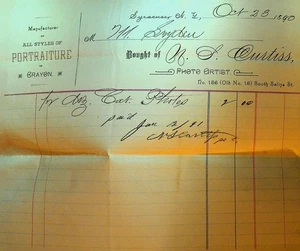 Syracuse, N. Y., Oct 23 1890
M
Manufacturer of
ALL STYLES OF
PORTRAITURE
IN
CRAYON.
Bought of N. S. Curtiss,
PHOTO ARTIST.
No. 186 (Old No. 18) South Salina St.
To Doz Cab. Photos 2 00
paid
Jan